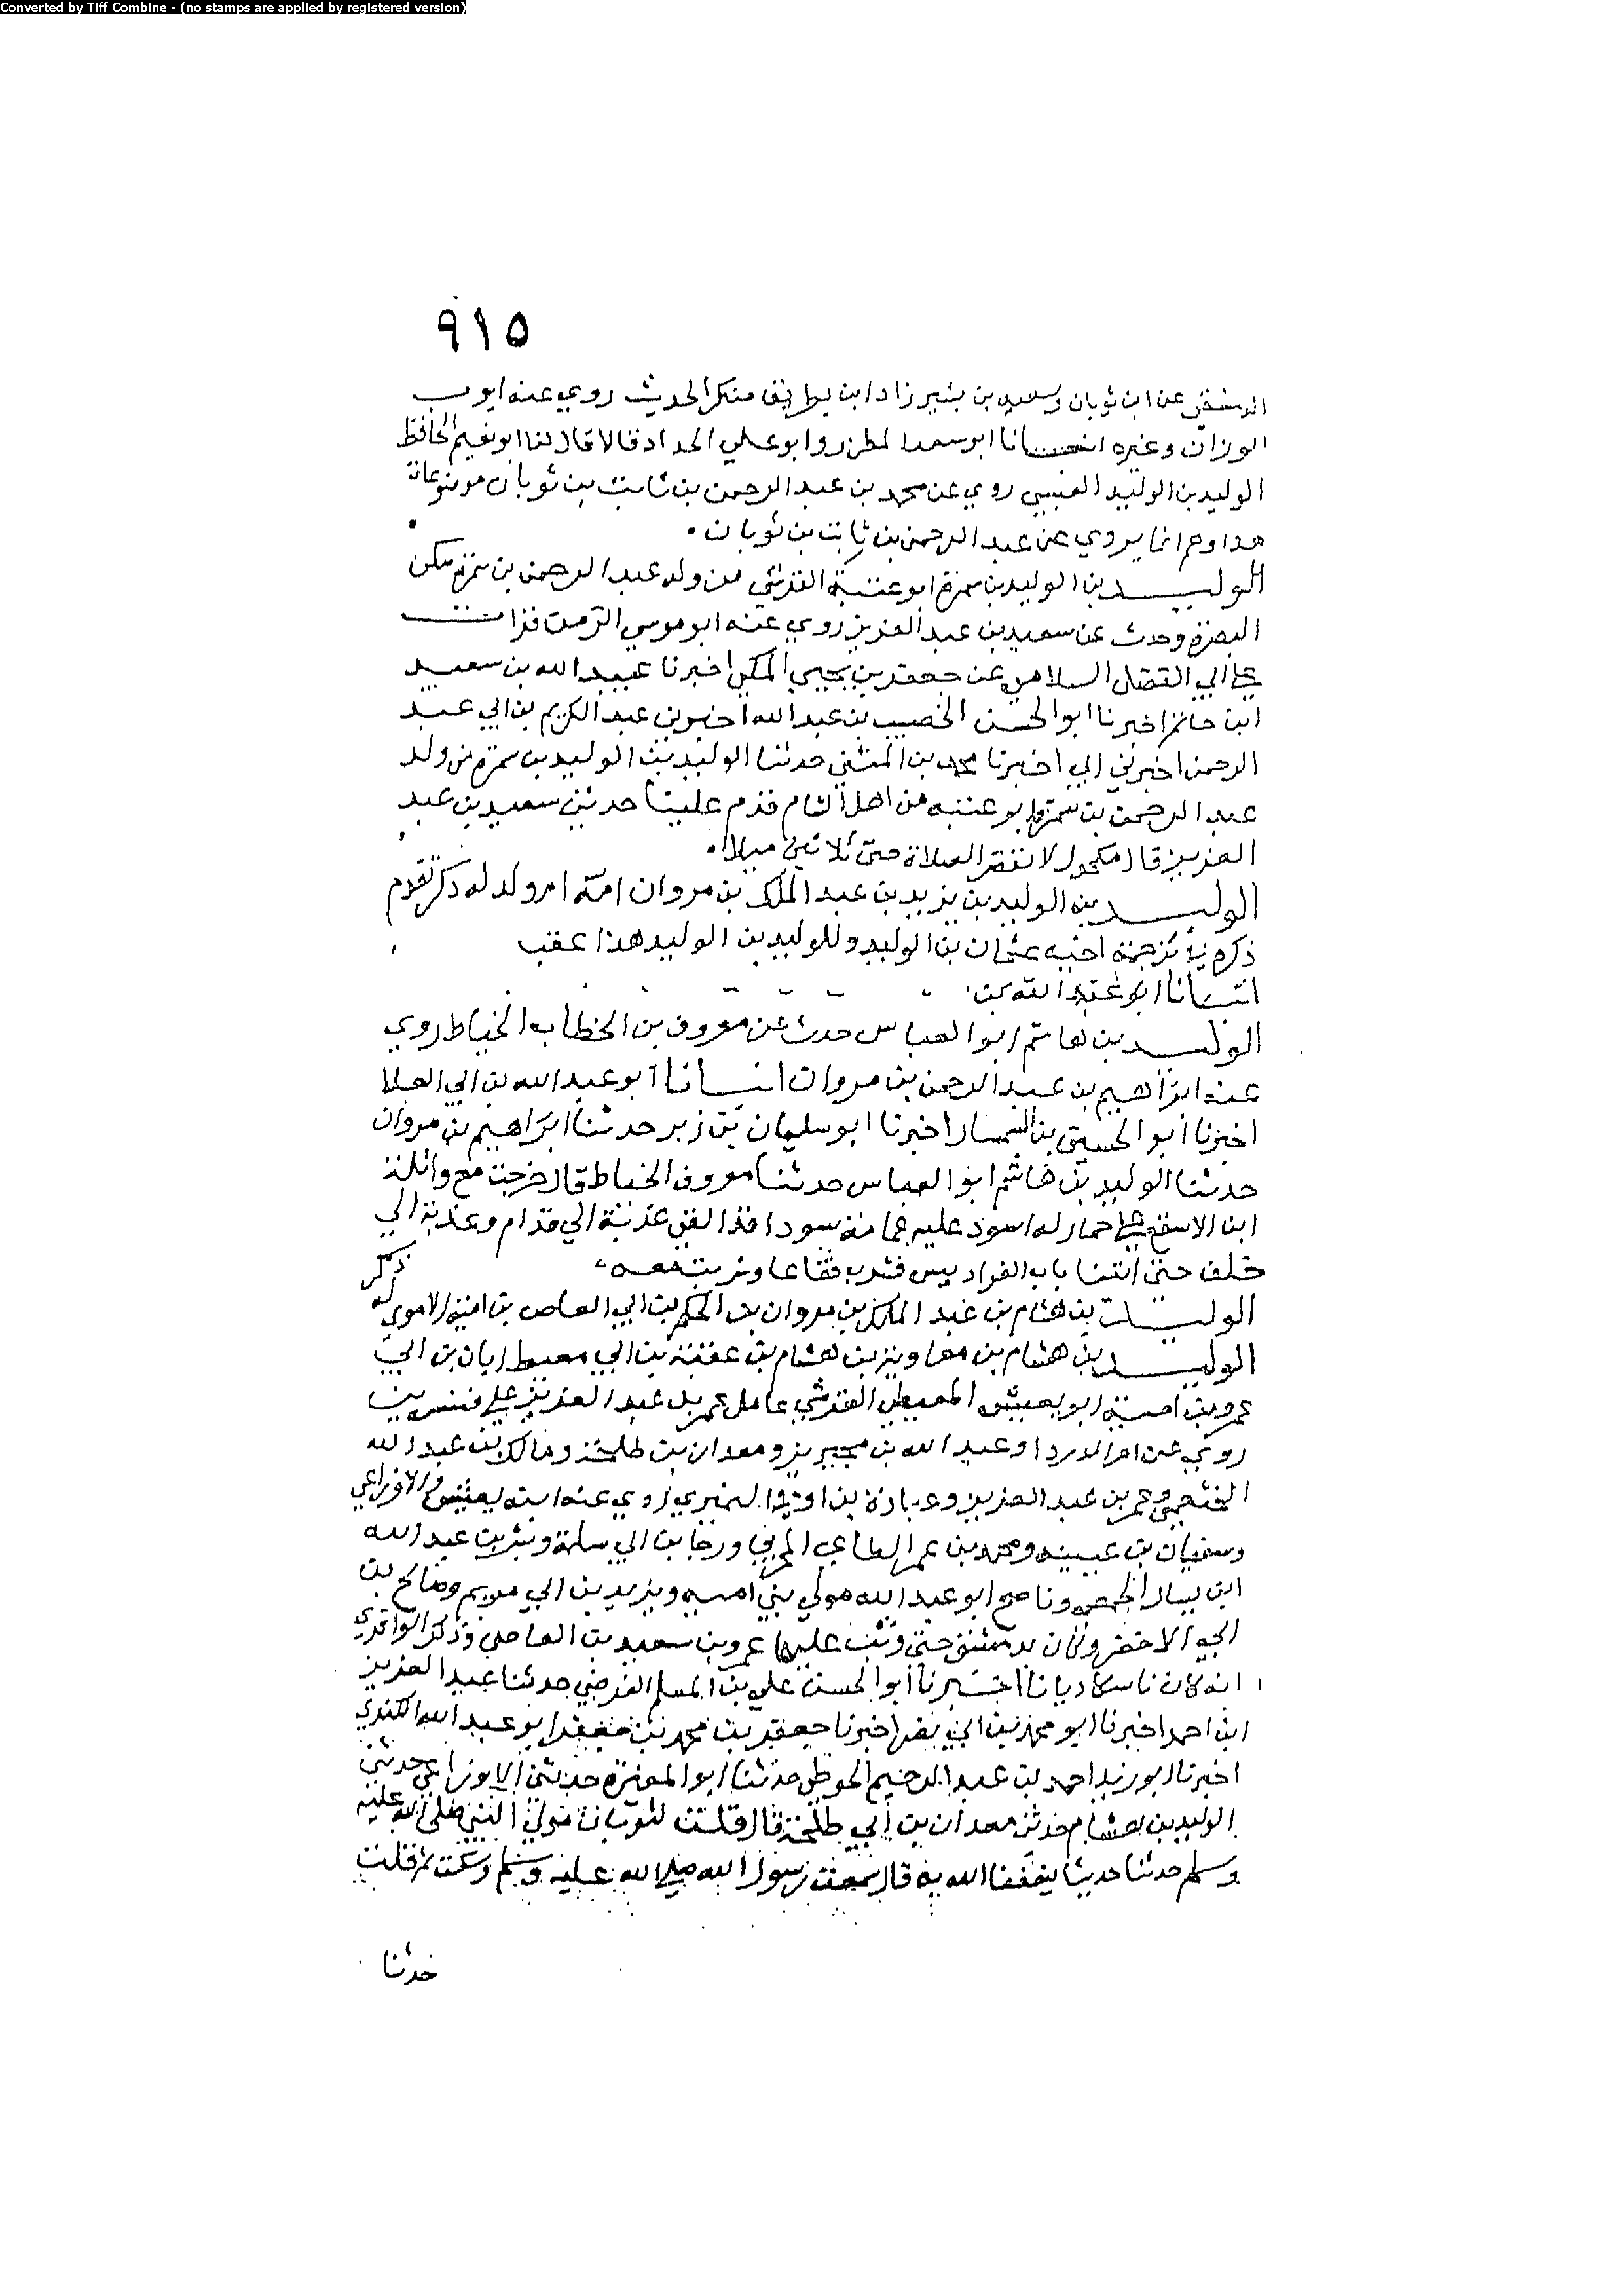 Converted by Tiff Combine - (no stamps are applied by registered version)
٩١٥
الدمشقي عن ابن ثوبان وسعيد بن بشير زاد ابن بطريق منكر الحديث روي عنه ايوب
الوزان وغيره انبانا ابو سعد المطرز وابو علي الحداد قالا قال لنا ابو نعيم الحافظ
الوليد بن الوليد العنسي روي عن محمد بن عبد الرحمن بن ثابت بن ثوبان موضوعات
هدا وهم انما يروي عن عبد الرحمن بن ثابت بن ثوبان
الوليد بن الوليد بن سمرة ابو عنبسة القرشي من ولد عبد الرحمن بن سمرة سكن
البصرة وحدث عن سعيد بن عبد العزيز روي عنه ابو موسي الزمن قرات
علي ابي الفضل السلامي عن جعفر بن يحيي المكي اخبرنا عبيد الله بن سعيد
ابن حاتم اخبرنا ابو الحسن الخصيب بن عبد الله اخبرني عبد الكريم بن ابي عبد
الرحمن اخبرني ابي اخبرنا محمد بن المثني حدثنا الوليد بن الوليد بن سمرة من ولد
عبد الرحمن بن سمرة ابو عنبسه من اهل الشام قدم علينا حدثني سعيد بن عبد
العزيز قال مكحول لا تقصر الصلاة حتى ثلاثين ميلا
الوليد بن الوليد بن يزيد بن عبد الملك بن مروان امه ام ولد له ذكر تقدم
ذكره في ترجمة اخيه عثمان بن الوليد وللوليد بن الوليد هذا عقب
انبانا ابو عبد الله بن
الوليد بن هاشم ابو العباس حدث عن معروف بن الخطاب الخياط روي
عنه ابراهيم بن عبد الرحمن بن مروان انبانا ابو عبد الله بن ابي العلا
اخبرنا ابو الحسين بن السمسار اخبرنا ابو سليمان بن زبر حدثنا ابراهيم بن مروان
حدثنا الوليد بن هاشم ابو العباس حدثنا معروف الخياط قال خرجت مع واثلة
ابن الاسقع علي حمار له اسود عليه عمامة سودا قد القى عذبة الي قدام وعذبة الي
خلف حتى اتينا باب الفراديس فشرب فقاعا وشربت معه
الوليد بن هشام بن عبد الملك بن مروان بن الحكم بن ابي العاص بن امية الاموي له ذكر
الوليد بن هشام بن معاوية بن هشام بن عقبة بن ابي معيط ابان بن ابي
عمرو بن امية ابو يعيش المعيطي القرشي عامل عمر بن عبد العزيز علي قنسرين
روي عن ام الدرداء وعبد الله بن محيريز ومعدان بن طلحة ومالك بن عبد الله
الخثعمي وعمر بن عبد العزيز وعبادة بن اوفي النميري روي عنه ابنه يعيش والاوزاعي
وسفيان بن عيينه ومحمد بن عمر الطاعي المحري ورجا بن ابي سلمة وبشر بن عبد الله
ابن يسار الحمصي وناصح ابو عبد الله مولي بني اميه ويزيد بن ابي مريم وصالح بن
ابي الاخضر وكان بدمشق حتى وثب عليها عمرو بن سعيد بن العاص وذكر الواقدي
انه كان ناسكا ديانا اخبرنا ابو الحسن علي بن المسلم الفرضي حدثنا عبد العزيز
ابن احمد اخبرنا ابو محمد بن ابي نصر اخبرنا جعفر بن محمد بن جعفر ابو عبد الله الكندي
اخبرنا ابو زيد احمد بن عبد الرحيم الحوطي حدثنا ابو المغيرة حدثني الاوزاعي حدثني
الوليد بن هشام حدثني معدان بن ابي طلحة قال قلت لثوبان مولي النبي صلى الله عليه
وسلم حدثنا حديثا ينفعنا الله به قال سمعت رسول الله صلي الله عليه وسلم وسكت ثم قلت
حدثنا